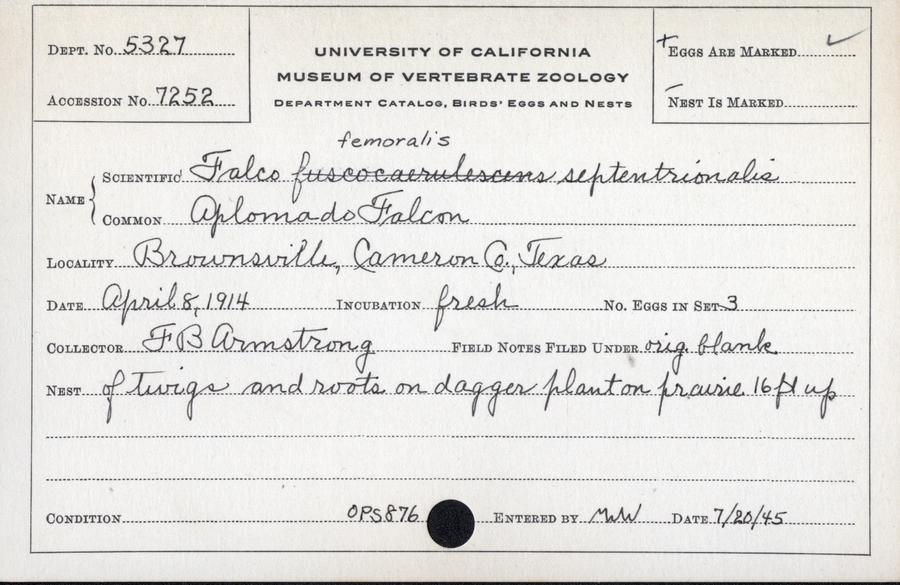 DEPT. No. 5327
ACCESSION No. 7252
UNIVERSITY OF CALIFORNIA
MUSEUM OF VERTEBRATE ZOOLOGY
DEPARTMENT CATALOG, BIRDS' EGGS AND NESTS
+ EGGS ARE MARKED ✓
- NEST IS MARKED
femoralis
NAME { SCIENTIFIC Falco fuscocaerulescens septentrionalis
COMMON Aplomado Falcon
LOCALITY Brownsville, Cameron Co., Texas
DATE April 8, 1914 INCUBATION fresh NO. EGGS IN SET 3
COLLECTOR F B Armstrong FIELD NOTES FILED UNDER orig. blank
NEST of twigs and roots on dagger plant on prairie 16 ft up
CONDITION OPS876 ENTERED BY MWW DATE 7/20/45